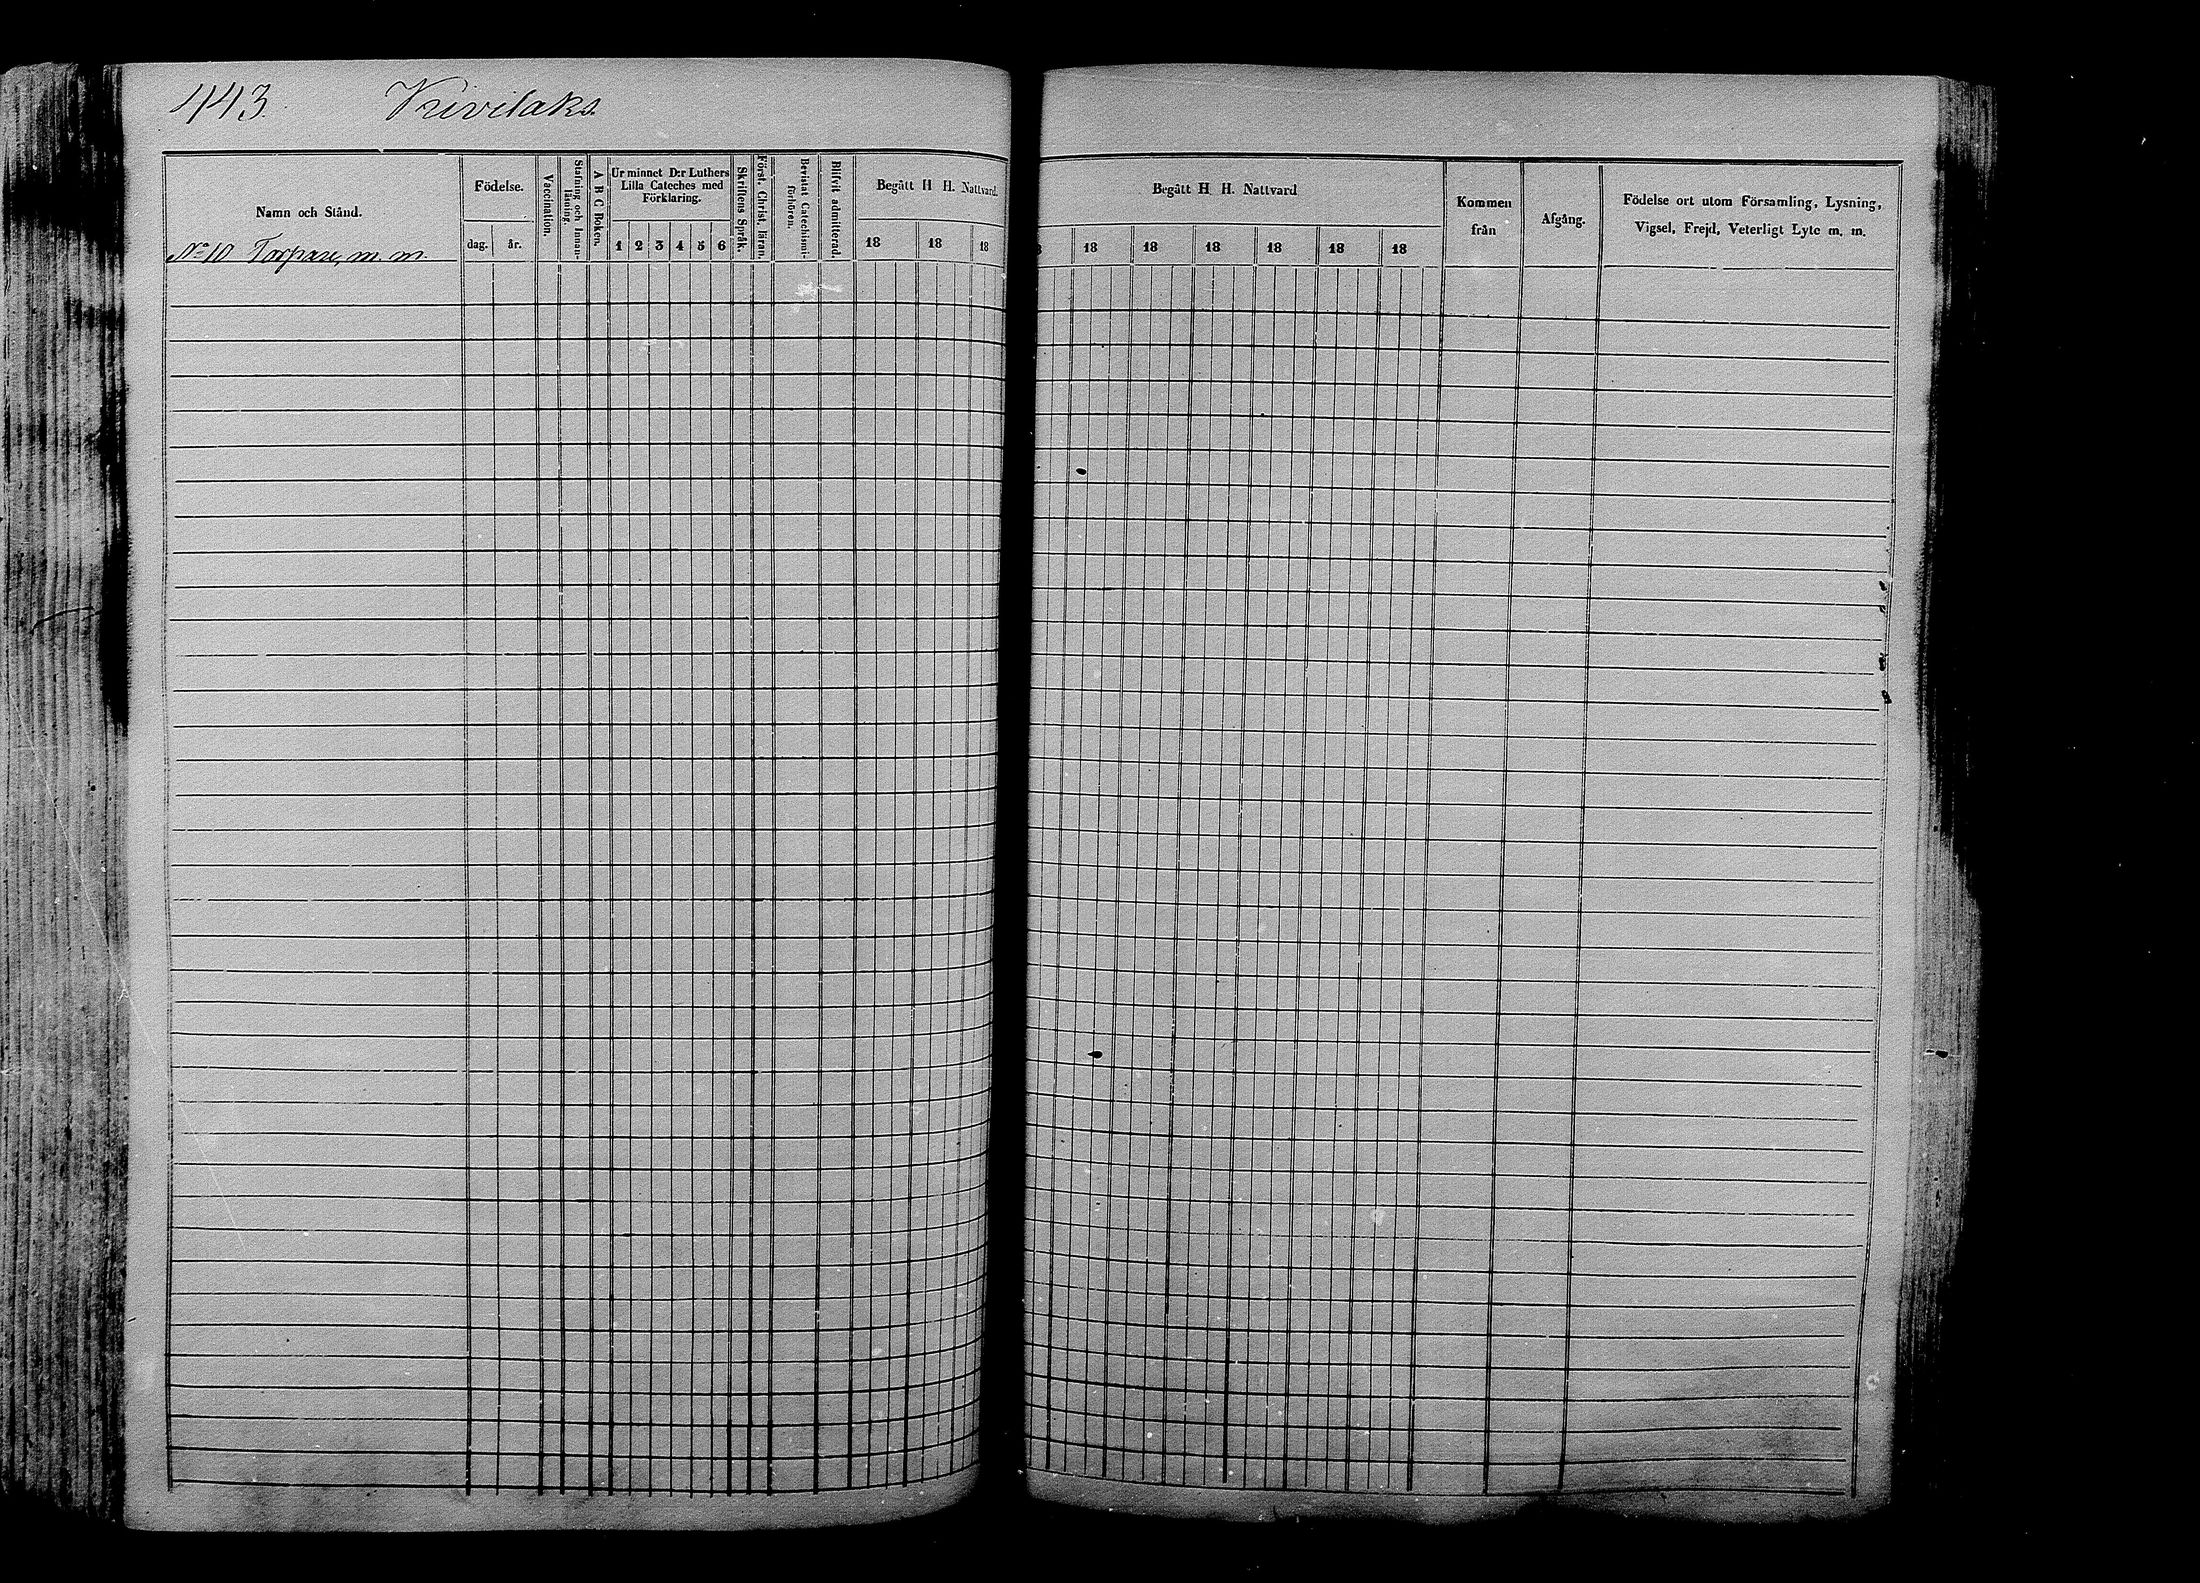 443. Kivilaks.
Namn och Stånd.
No 10 Torpare, m. m.
Födelse.
dag. år.
Vaccination.
Stafning och Innanläsning.
A B C Boken.
Ur minnet D:r Luthers
Lilla Cateches med
Förklaring.
1 2 3 4 5 6
Skriftens Språk.
Först. Christ. läran.
Bevistat Catechismi-
förhören.
Blifvit admitterad.
Begått H. H. Nattvard.
18 18 18
Begått H. H. Nattvard
18 18 18 18 18 18
Kommen
från
Afgång.
Födelse ort utom Församling, Lysning,
Vigsel, Frejd, Veterligt Lyte m. m.